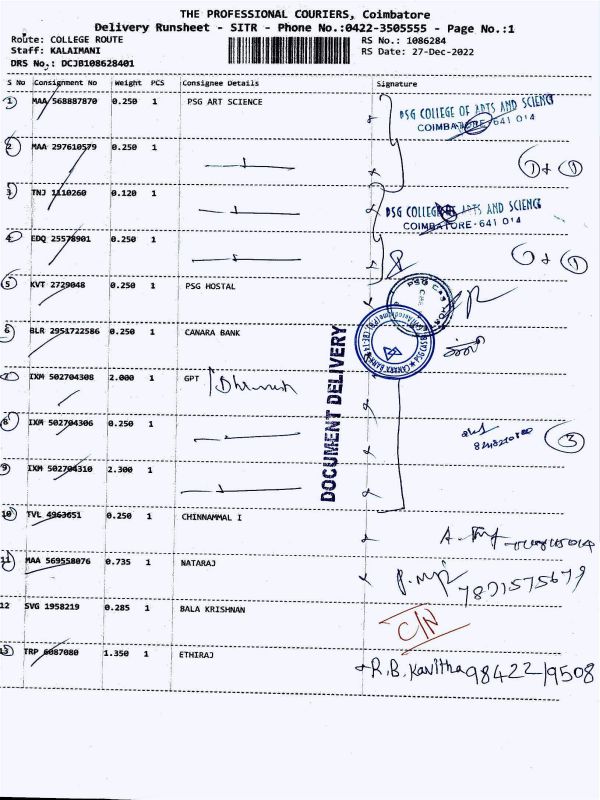 THE PROFESSIONAL COURIERS, Coimbatore
Delivery Runsheet - SITR - Phone No.:0422-3505555 - Page No.:1
Route: COLLEGE ROUTE
Staff: KALAIMANI
DRS No.: DCJB108628401
RS No.: 1086284
RS Date: 27-Dec-2022
S No Consignment No Weight PCS Consignee Details Signature
1 MAA 568887870 0.250 1 PSG ART SCIENCE
PSG COLLEGE OF ARTS AND SCIENCE
COIMBATORE-641 014
2 MAA 297610579 0.250 1
1 & 1
3 TNJ 1110260 0.120 1
PSG COLLEGE OF ARTS AND SCIENCE
COIMBATORE-641 014
4 EDQ 25578901 0.250 1
1 & 1
5 KVT 2729048 0.250 1 PSG HOSTAL
6 BLR 2951722586 0.250 1 CANARA BANK
DOCUMENT DELIVERY
7 IXM 502704308 2.000 1 GPT
8 IXM 502704306 0.250 1
3
9 IXM 502704310 2.300 1
10 TVL 4963651 0.250 1 CHINNAMMAL I
11 MAA 569558076 0.735 1 NATARAJ
7871575679
12 SVG 1958219 0.285 1 BALA KRISHNAN
C/N
13 TRP 6087080 1.350 1 ETHIRAJ
R.B.Kavitha 9842219508